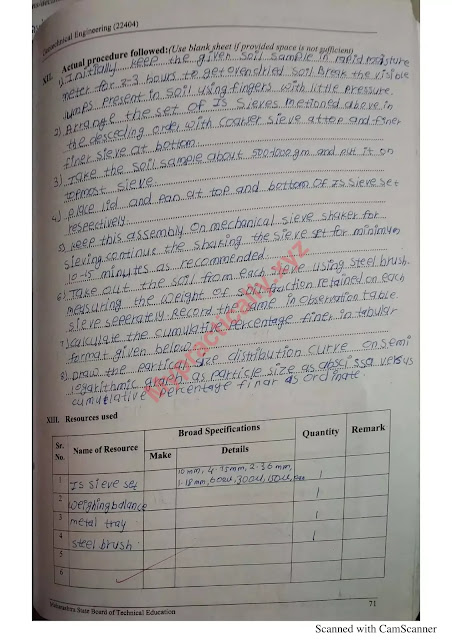 Geotechnical Engineering (22404)
XII. Actual procedure followed:(Use blank sheet if provided space is not sufficient)
1) Initially keep the given soil sample in rapid moisture
meter for 2-3 hours to get ovendried soil. Break the visible
lumps present in soil using fingers with little pressure.
2) Arrange the set of IS sieves metioned above in
the desceding order with coarser sieve at top and finer
finer sieve at bottom.
3) Take the soil sample about 500-1000gm and put it on
topmost sieve
4) place lid and pan at top and bottom of IS sieve set
respectively.
5) keep this assembly on mechanical sieve shaker for
sieving. continue the shaking the sieve set for minimum
10-15 minutes as recommended
6) Take out the soil from each sieve using steel brush.
measuring the weight of soil fraction retained on each
sieve seperately. Record the same in observation table.
7) calculate the cumulative percentage finer in tabular
format given below
8) Draw the partical size distribution curve on semi
logarithmic graph as particle size as abscissa versus
cumulative percentage finar as ordinate.
XIII. Resources used
Sr. No. Name of Resource Broad Specifications Quantity Remark
Make Details
1 Is sieve set 10mm, 4.75mm, 2.36mm, 1
1.18mm, 600u, 300u, 150u, pan
2 weighing balance 1
3 metal tray 1
4 steel brush 1
5
6
Maharashtra State Board of Technical Education 71
Scanned with CamScanner